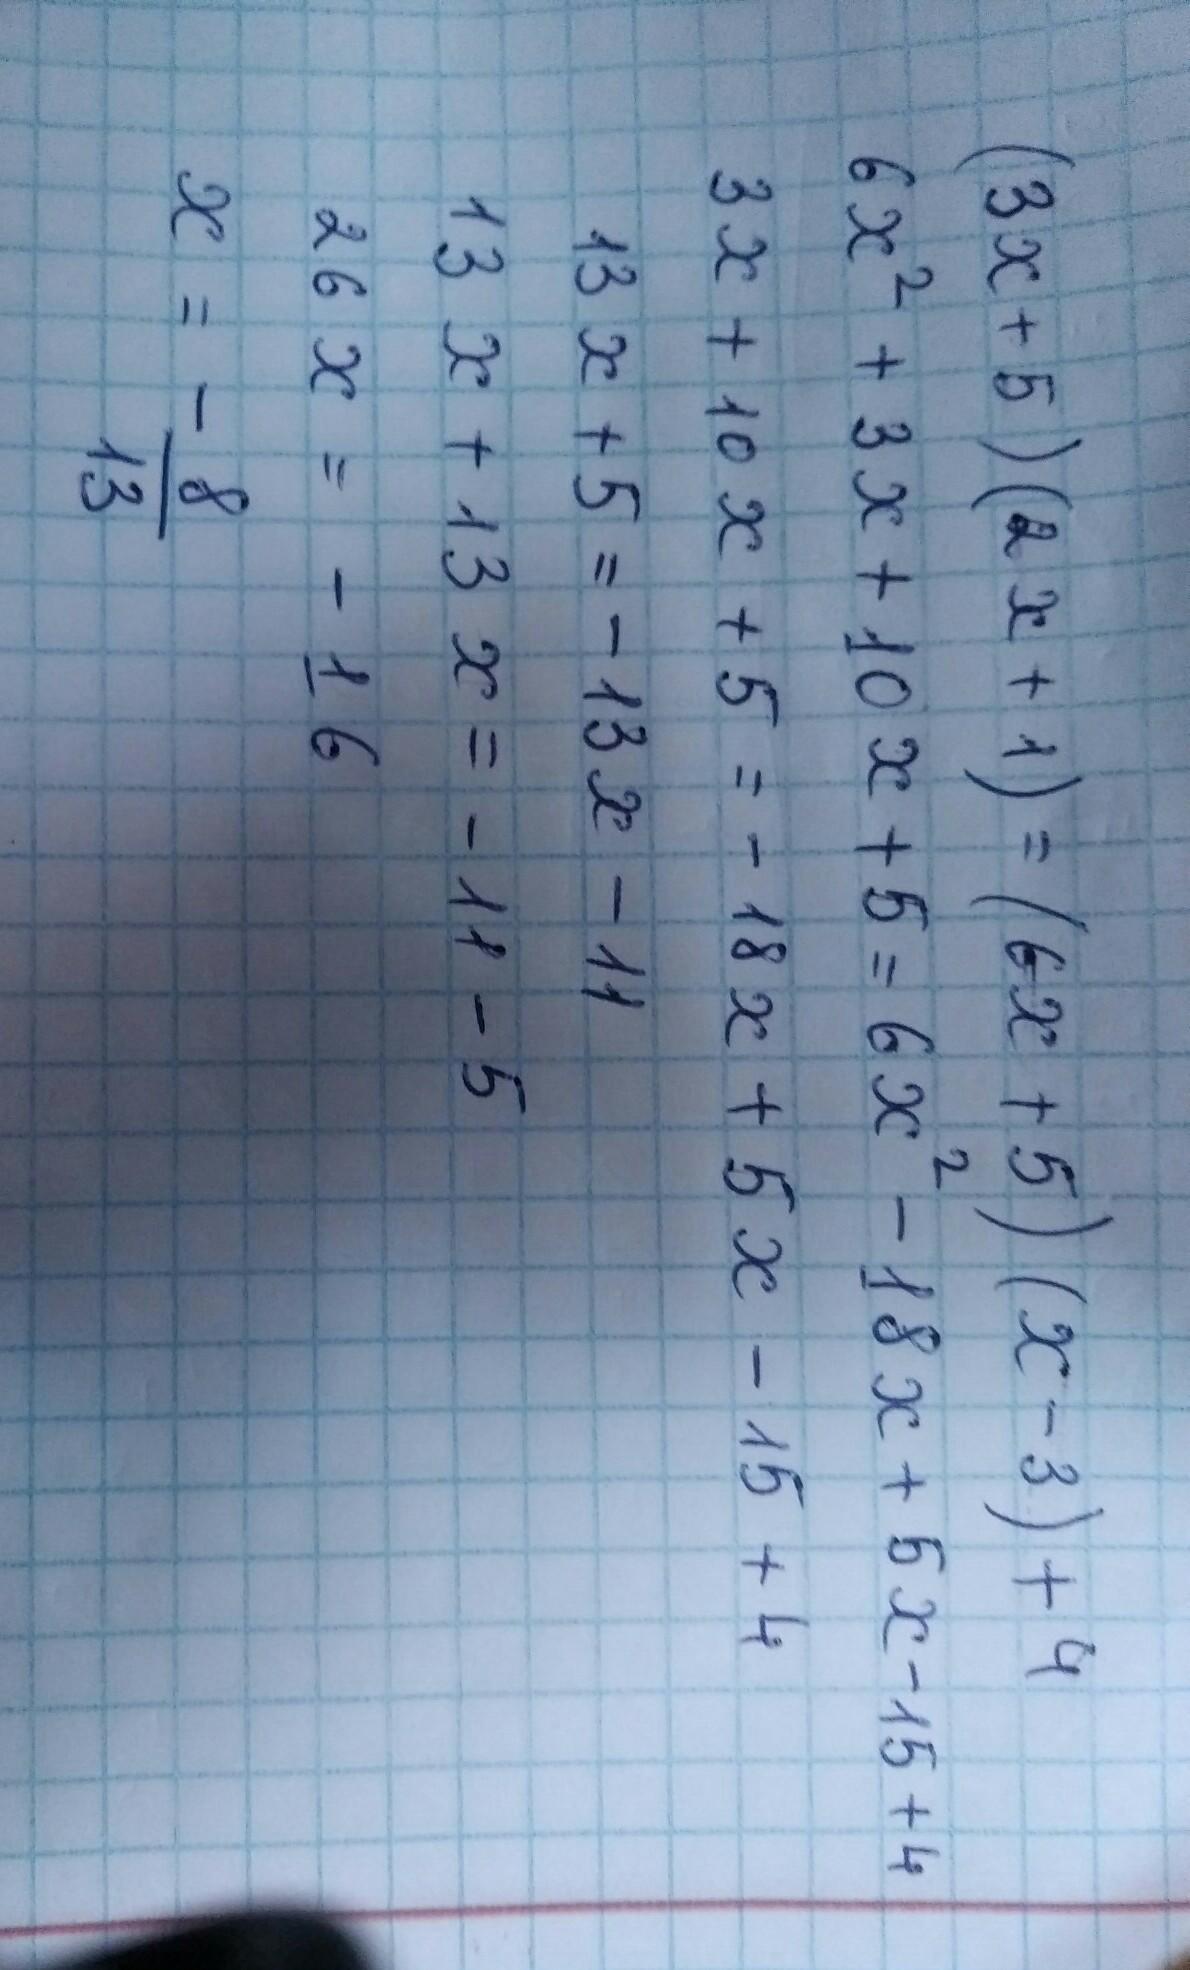 (3x+5)(2x+1)=(6x+5)(x-3)+4
6x²+3x+10x+5=6x²-18x+5x-15+4
3x+10x+5=-18x+5x-15+4
13x+5=-13x-11
13x+13x=-11-5
26x=-16
x=-8/13